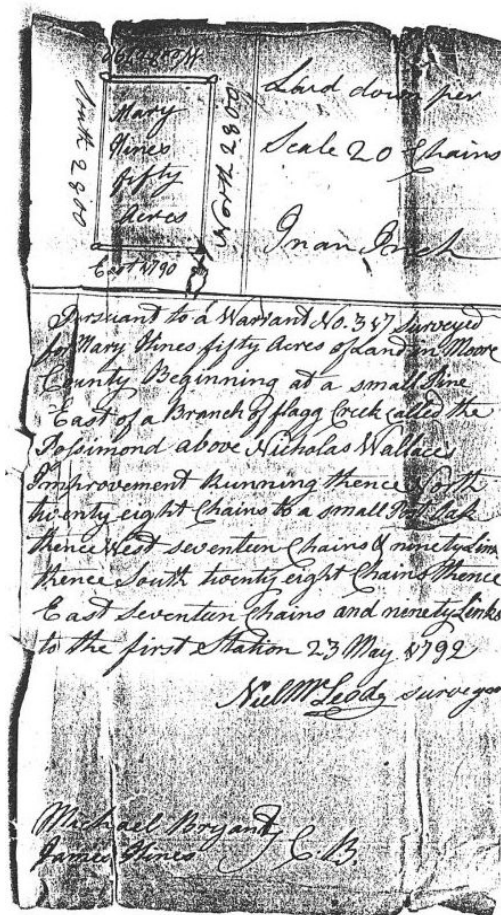 West 1790
South 2800
Mary
Hines
fifty
Acres
North 2800
East 1790
Laid down per
Scale 20 Chains
In an Inch
Pursuant to a Warrant No. 347 Surveyed
for Mary Hines fifty Acres of Land in Moore
County Beginning at a small Pine
East of a Branch of flagg Creek called the
Possimond above Nicholas Wallaces
Improvement Running thence North
twenty eight Chains to a small Post Oak
thence West seventeen Chains & ninety Links
thence South twenty eight Chains thence
East seventeen Chains and ninety Links
to the first Station 23 May 1792
Niel McLeod surveyor
Michael Bryant
James Hines
C. B.